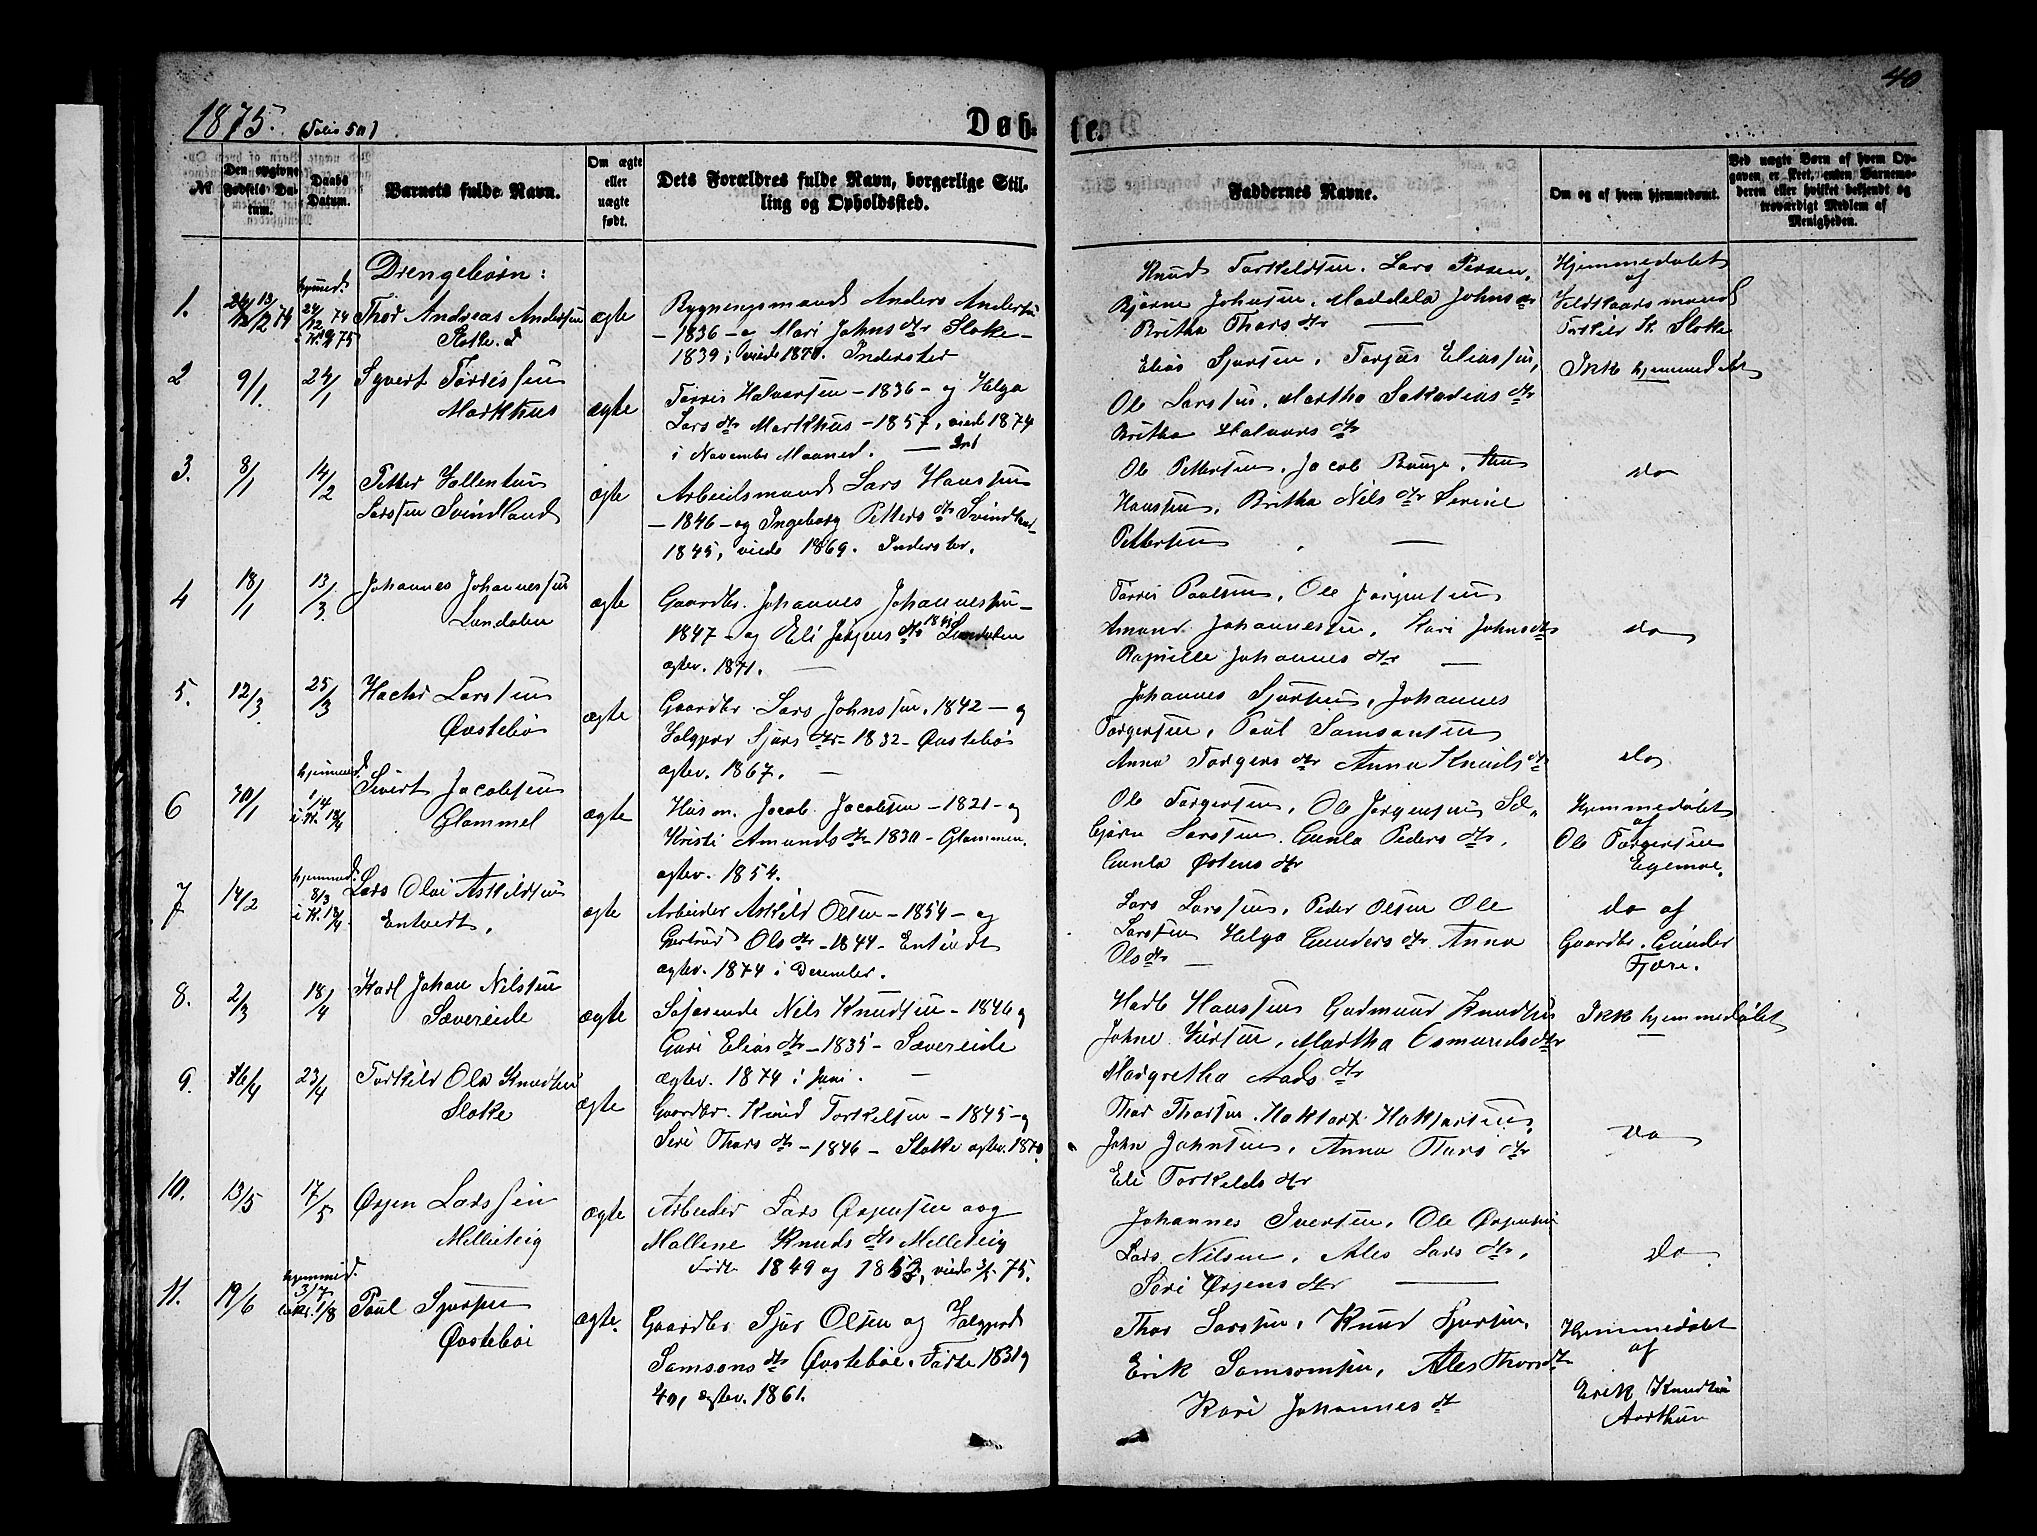 40
1875. (Folio 50)
Døb-
te.
№
Den opgivne Fødsels Datum.
Daabs Datum.
Barnets fulde Navn.
Om ægte eller uægte født.
Dets Forældres fulde Navn, borgerlige Stilling og Opholdssted.
Faddernes Navne.
Om og af hvem hjemmedøbt.
Ved uægte Børn af hvem Opgaven er skeet, enten Barnemoderen eller hvilket bekjendt og troværdigt Medlem af Menigheden.
Drengebørn:
1.
hjemmed.
24/12 74
Thor Andreas Andersen
Stokke
ægte
Bygningsmand Anders Andersen
- 1836 - og Mari Johns dtr Stoke -
1839, viede 1870. Inderster
Knud Torkeldsen. Lars Persen,
Bjørne Johnsen, Maddela Johns dtr
Britha Thors dtr —
Hjemmedøbt
af
Veldhaarsmand
Torkier K. Stoke
2 9/1. 24/1
Syvert Tørrissen
Markhus
ægte
Tørris Halvorsen - 1836 - og Helga
Lars dtr Markhus - 1857, viede 1874
i November Maaned. — Ind
Elias Sjursen, Torjus Eliassen,
Ole Larssen, Martha Sakarias dtr
Britha Halvors dtr
Ikke hjemmedøbt
3. 8/1 14/2
Petter Vallentin
Larssen Svindland
ægte
Arbeidsmand Lars Hanssen
- 1846 - og Ingeborg Petters dtr Svindland
1845, viede 1869. Inderster.
Ole Pettersen, Jacob Bauge,
Hanssen, Britha Nils dtr Serine
Pettersen —
do
4 18/1 13/3
Johannes Johannessen
Lundalen
ægte
Gaardbr. Johannes Johannessen -
1847 - og Eli Jørgens dtr Lundalen
ægtev. 1871. —
Tørris Paulsen, Ole Jørgensen
Amund Johannessen, Kari Johns dtr
Ragnille Johannes dtr —
do
5. 12/3. 25/3
Larssen
Øvstebø
ægte
Gaardbr. Lars Johnssen, 1842 - og
Valgjer Sjurs dtr - 1832 - Øvstebø
ægtev. 1867. —
Johannes Sjursen, Johannes
Torgersen, Paul Samsonsen
Anna Torgers dtr Anna Knuds dtr
do
6 30/1
hjemmed.
1/4
i K. 18/4
Sivert Jacobsen
Glammel
ægte
Husm. Jacob Jacobsen - 1821 - og
Kristi Amunds dtr 1830 - Glammen.
ægtev. 1854.
Ole Torgersen, Ole Jørgensen Sel-
bjørn Larssen. Gunla Peders dtr,
Gunla Østens dtr
Hjemmedøbt
af
Ole Torgersen
Egemoe.
7 14/2
hjemmed.
8/3
i K. 18/4
Lars Olai Askildsen
Entvedt,
ægte
Arbeider Askild Olsen - 1854 - og
Gertrud Ols dtr - 1844 - Entvedt
ægtev. 1874 i December.
Lars Larssen, Peder Olsen Ole
Larssen Helga Gunders dtr Anna
Ols dtr —
do af
Gaardbr. Gunder
Fjære.
8. 2/3 18/4
Karl Johan Nilssen
Sævereide
ægte
Søfarende Nils Knudsen - 1846 og
Guri Elias dtr - 1835 - Sævereide
ægtev. 1874 i Juni. —
Hanssen Gudmund Knudsen
Johne Martha Osmunds dtr
Margretha Aads dtr
Ikke hjemmedøbt
9. 16/4 23/4
Torkild Ola Knudsen
Stokke
ægte
Gaardbr. Knud Torkelsen - 1845 - og
Siri Thors dtr - 1846 - Stokke ægtev. 1870.
Thor Thorsen. Haktor Haktorsen,
John Johnsen, Anna Thors dtr
Eli Torkelds dtr
do
10. 13/5 17/5
Ørjen Larssen
Milleteig
ægte
Arbeider Lars Ørjensen og
Mallene Knuds dtr Milleteig
Født 1849 og 1853, viede 75.
Johannes Iversen, Ole Ørjensen
Lars Nilsen, Ales Lars dtr,
Siri Ørjens dtr —
do
11. 19/6
hjemmed.
3/7
i K. 1/8
Paul Sjursen
Øvstebøe
ægte.
Gaardbr Sjur Olsen og Valgjerd
Samsons dtr Øvstebøe. Fødte 1831 og
40, ægtev. 1861.
Thor Larssen, Knud Sjursen,
Erik Samsonsen, Ales Thors dtr
Kari Johannes dt
Hjemmedøbt
af
Erik Knudsen
Aarthun